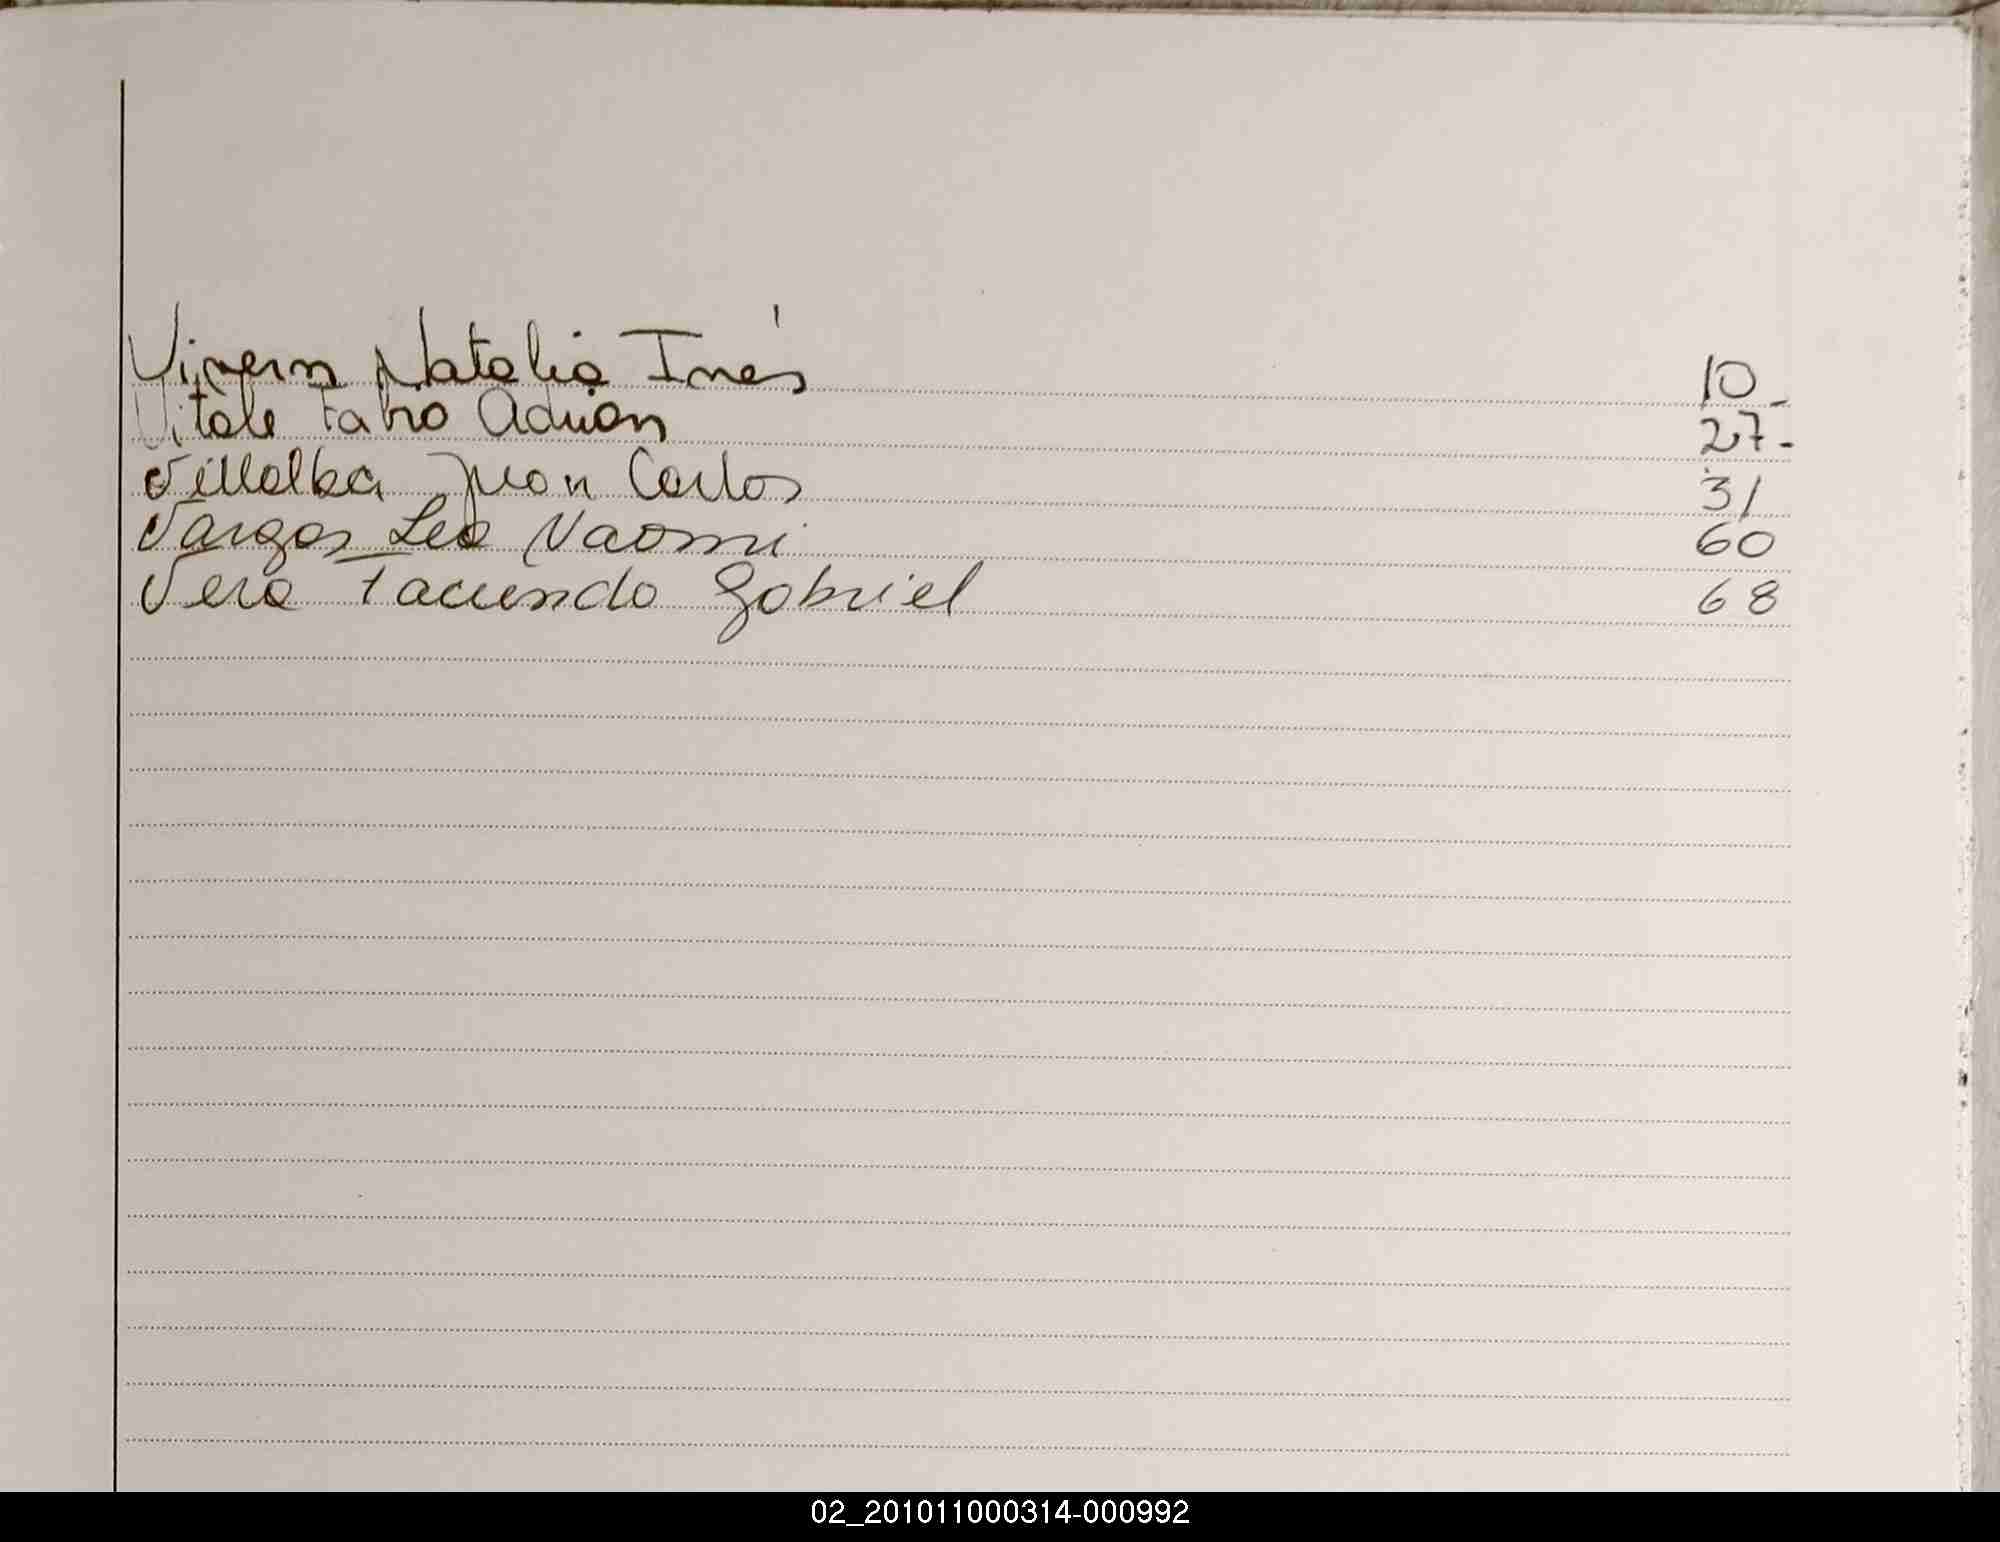 Natalia Inés 10_
Vitale Fabio Adrián 27-
Villalba Juan Carlos 31
Vargas Lea Naomi 60
Vera Facundo Gabriel 68
02_201011000314-000992